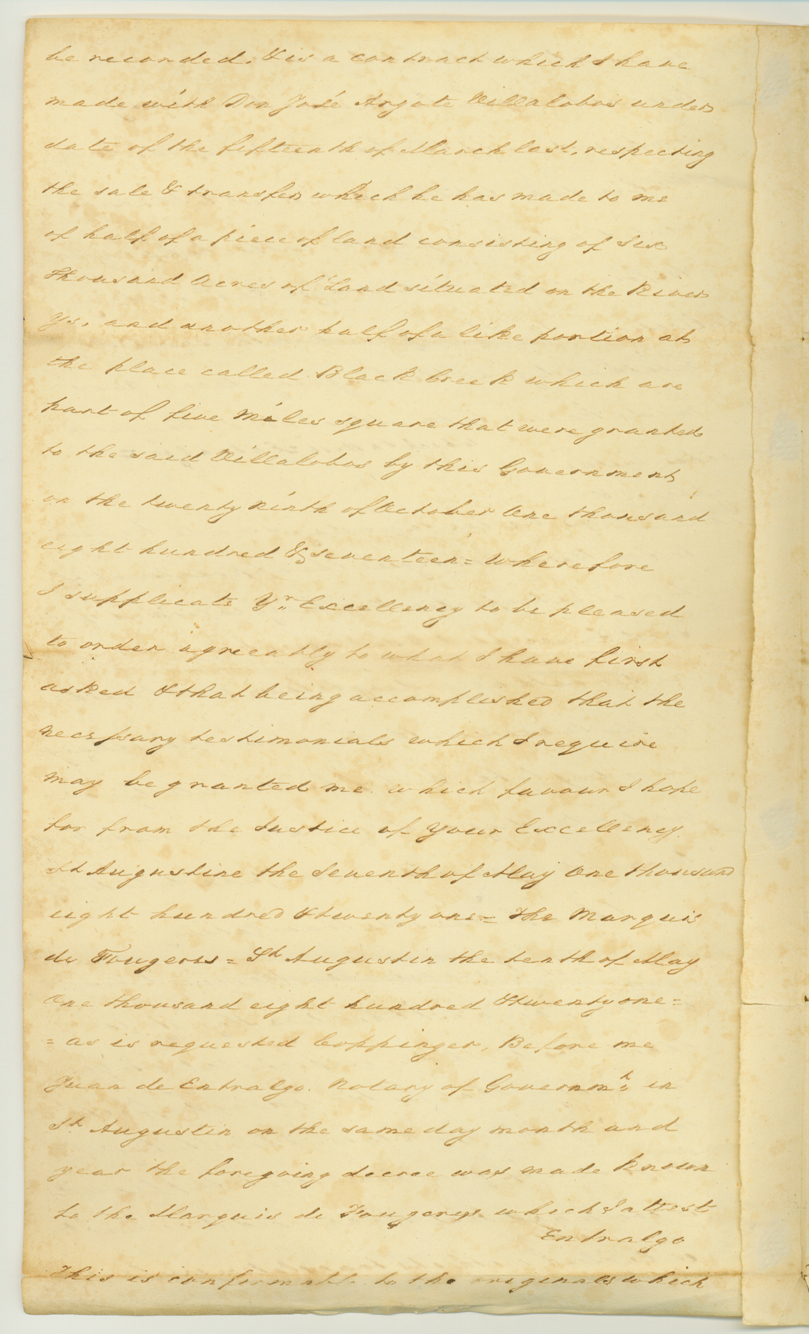 be recorded. & is a contract which I have
made with Don José Argote Villalobos under
date of the fifteenth of March last, respecting
the sale & transfer which he has made to me
of half of a piece of land consisting of Six
Thousand Acres of Land situated on the River
and another half of a like portion at
the place called Black Creek which are
part of five Miles square that were granted
to the said Villalobos by this Government
on the twenty Ninth of October One thousand
eight hundred & seventeen = Wherefore
I supplicate Yr. Excellency to be pleased
to order agreeably to what I have first
asked & that being accomplished that the
necessary testimonials which I require
may be granted me which favour I hope
for from the Justice of Your Excellency.
St Augustine the Seventh of May One thousand
eight hundred & twenty one = The Marquis
de Fougeres = St Augustin the tenth of May
One thousand eight hundred & twenty one =
= as is requested Coppinger, Before me
Juan de Entralgo. Notary of Governmt. in
St Augustin on the same day month and
year the foregoing decree was made known
to the Marquis de Fougerys which I attest
Entralgo
This is conformable to the originals which